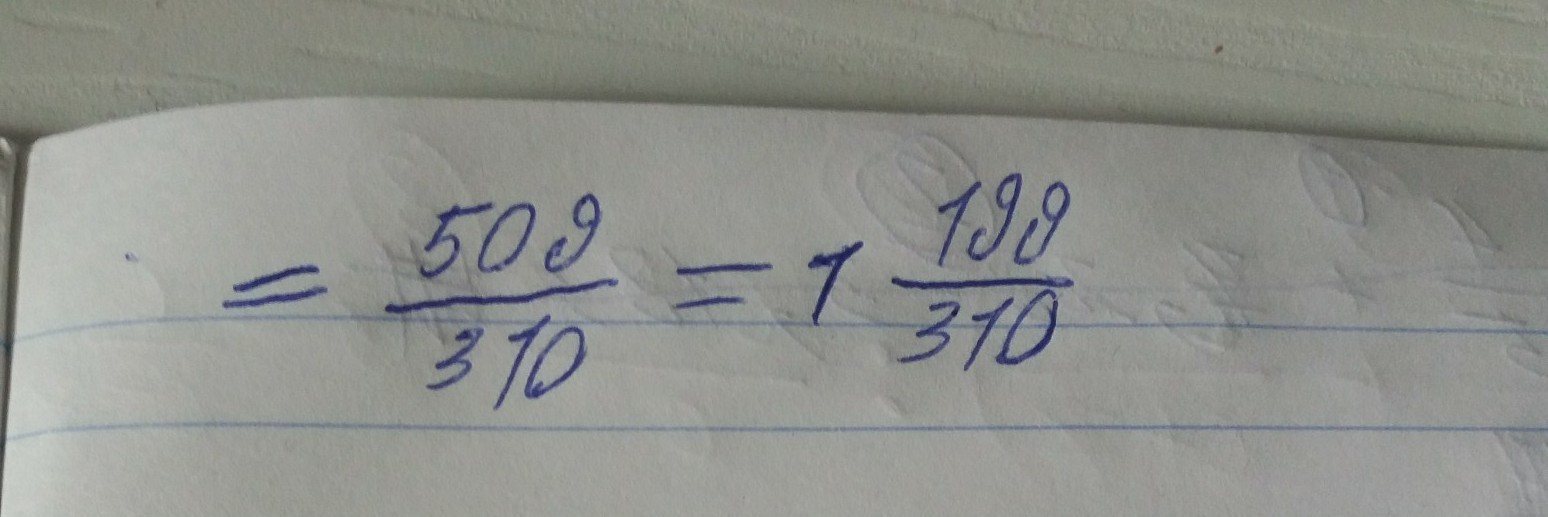 = 509/310 = 1 199/310